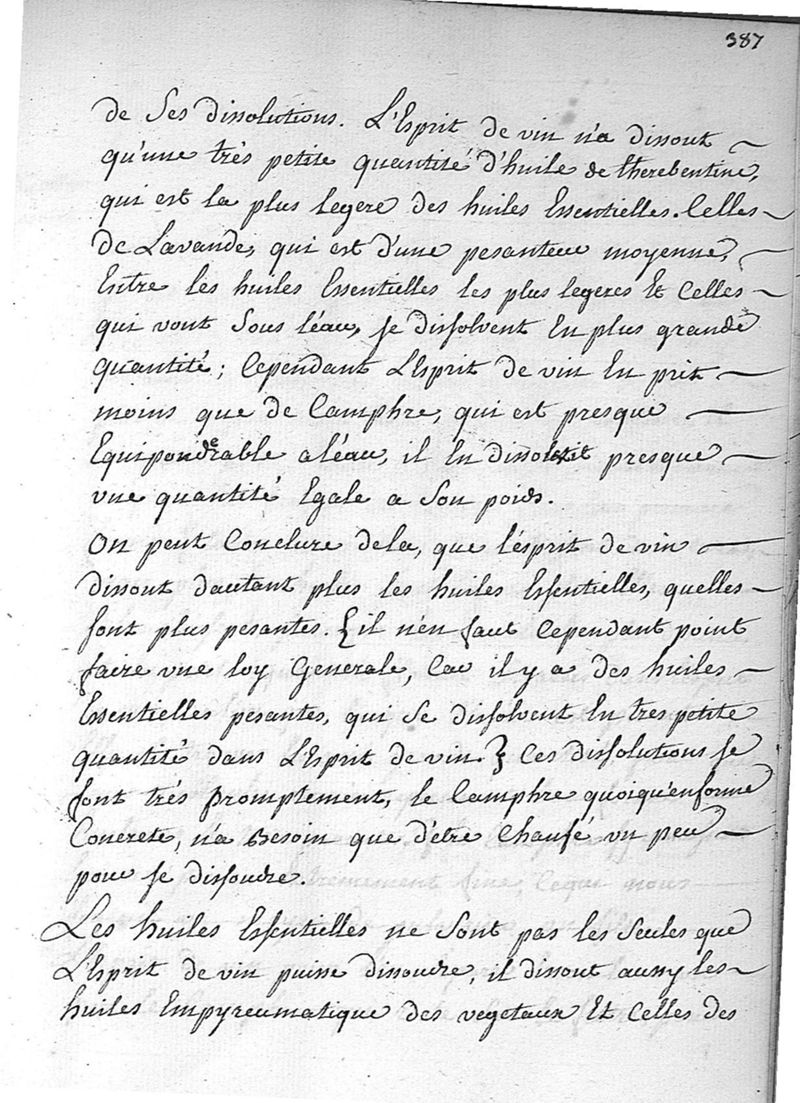 387
de Ses dissolutions. L'Esprit de vin n'a dissout
qu'une trés petite quantité d'huile de therebentine,
qui est la plus legere des huiles Essentielles. Celles
de Lavande, qui est d'une pesanteur moyenne,
Entre les huiles Essentielles les plus legeres Et Celles
qui vont Sous l'éau, se dissolvent En plus grande
quantité; Cependant L'Esprit de vin En prit
moins que de Camphre, qui est presque
Equiponderable a l'éau, il En dissout presque
vne quantité Egale a Son poids.
On peut Conclure dela, que lésprit de vin
dissout dautant plus les huiles Essentielles, quelles
sont plus pesantes. { il n'en faut Cependant point
faire vne loy Generale, Car il y a des huiles
Essentielles pesantes, qui Se dissolvent En tres petite
quantité dans L'Esprit de vin. } Ces dissolutions se
font trés promptement, le Camphre quoiqu'enforme
Concrete, n'a Besoin que d'étre Chaufé vn peu
pour se dissoudre.
Les huiles Essentielles ne Sont pas les Seules que
L'Esprit de vin puisse dissoudre, il dissout aussy les
huiles Empyreumatique des vegetaux Et Celles des